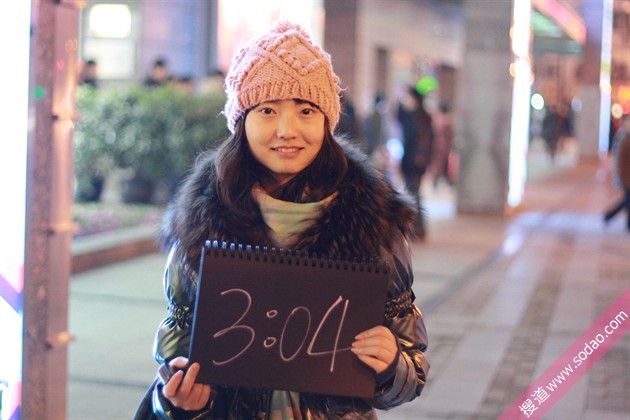 3:04
搜道www.sodao.com